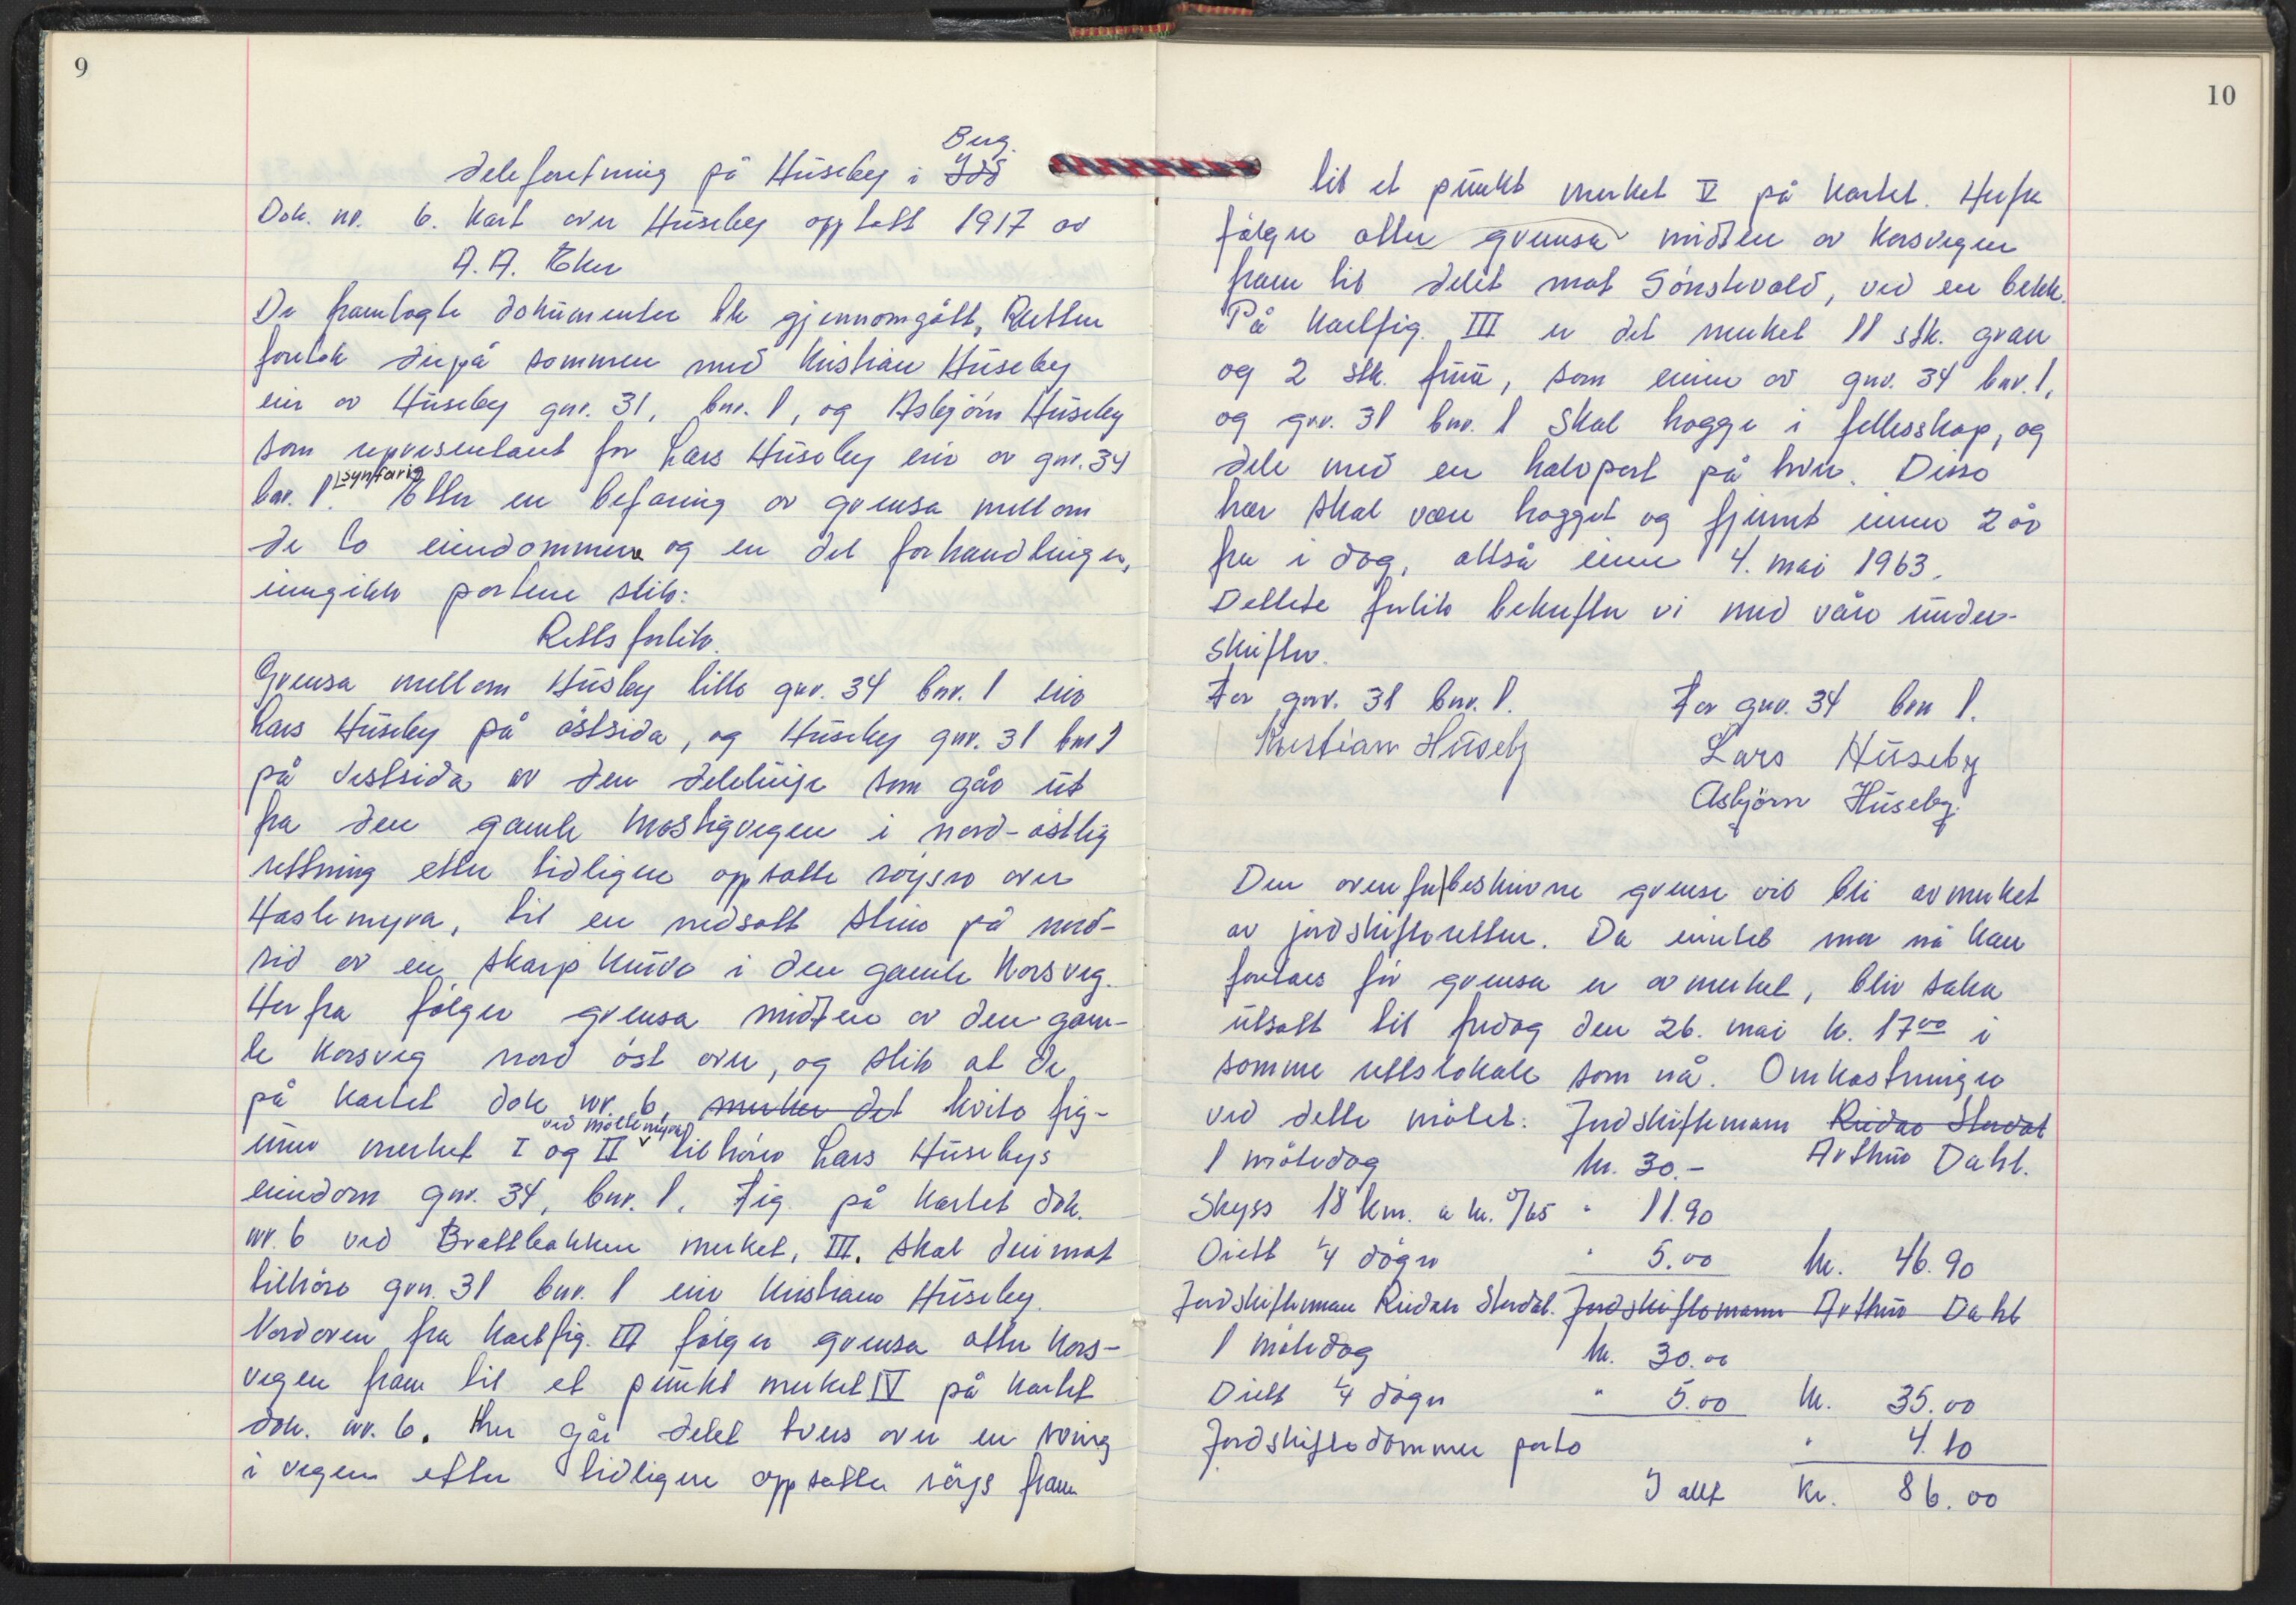 9
Berg.
Deleforretning på Huseby i Idd
Dok. nr. 6. Kart over Huseby opptatt 1917 av
A. A. Eker
De framlagte dokumenter ble gjennomgått, Retten
foretok derpå sammen med Kristian Huseby
eier av Huseby gnr. 31, bnr. 1, og Asbjörn Huseby
som representant for Lars Huseby eier av gnr. 34
bnr. 1. synfaring Etter en befaring av grensa mellom
de to eiendommene og en del forhandlinger,
inngikk partene slik:
Rettsforlik.
Grensa mellom Huseby lille gnr. 34 bnr. 1 eier
Lars Huseby på östsida, og Huseby gnr. 31 bnr 1
på vestsida av den delelinje som går ut
fra den gamle Mostigvegen i nord-östlig
rettning etter tidligere oppsatte röyser over
Haslemyra, til en nedsatt stein på nord-
sid av en skarp kurve i den gamle Korsveg.
Herfra fölger grensa midten av den gam-
le Korsveg nord öst over, og slik at de
på kartet dok nr. 6, merker det hvite fig-
urer merket I og II ved möllemyra tilhörer Lars Husebys
eiendom gnr. 34, bnr. 1. Fig. på kartet dok.
nr. 6 ved Brattbakken merket, III. skal derimot
tilhöre gnr. 31 bnr. 1 eier Kristian Huseby.
Nordover fra kartfig. III fölger grensa atter Kors-
vegen fram til et punkt merket IV på kartet
dok. nr. 6. Her går delet tvers over en sving
i vegen etter tidligere oppsatte röys fram
10
til et punkt merket V på kartet. Herfra
fölger atter grensa midten av Korsvegen
fram til delet mot Sönstevold, ved en bekk.
På kartfig. III er det merket 11 stk. gran
og 2 stk. furu, som eierne av gnr. 34 bnr. 1,
og gnr. 31 bnr. 1 skal hogge i fellesskap, og
dele med en halvpart på hver. Disse
trær skal være hogget og fjernet innen 2 år
fra i dag, altså innen 4. mai 1963.
Dette forlik bekrefter vi med våre under-
skrifter.
For gnr. 31 bnr. 1. For gnr. 34 bnr 1.
Kristian Huseby Lars Huseby
Asbjörn Huseby.
Den ovenfor beskrevne grense vil bli avmerket
av jordskifteretten. Da eintet mer nå kan
foretaes för grensa er avmerket, blir saka
utsatt til fredag den 26. mai kl. 17⁰⁰ i
samme rettslokale som nå. Omkostninger
ved dette mötet: Jordskiftemann Reidar Stordal
1 mötedag kr. 30.- Arthur Dahl.
Skyss 18 km. a kr. 0/65 " 11.90
Diett 1/4 dögn " 5.00 kr. 46.90
Jordskiftemann Reidar Stordal. Jordskiftemann Arthur Dahl
1 mötedag kr. 30.00
Diett 1/4 dögn " 5.00 kr. 35.00
Jordskiftedommer porto " 4.10
I alt kr. 86.00